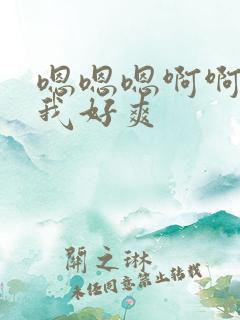 嗯嗯嗯啊啊
我好爽
關之琳
未经同意禁止转载